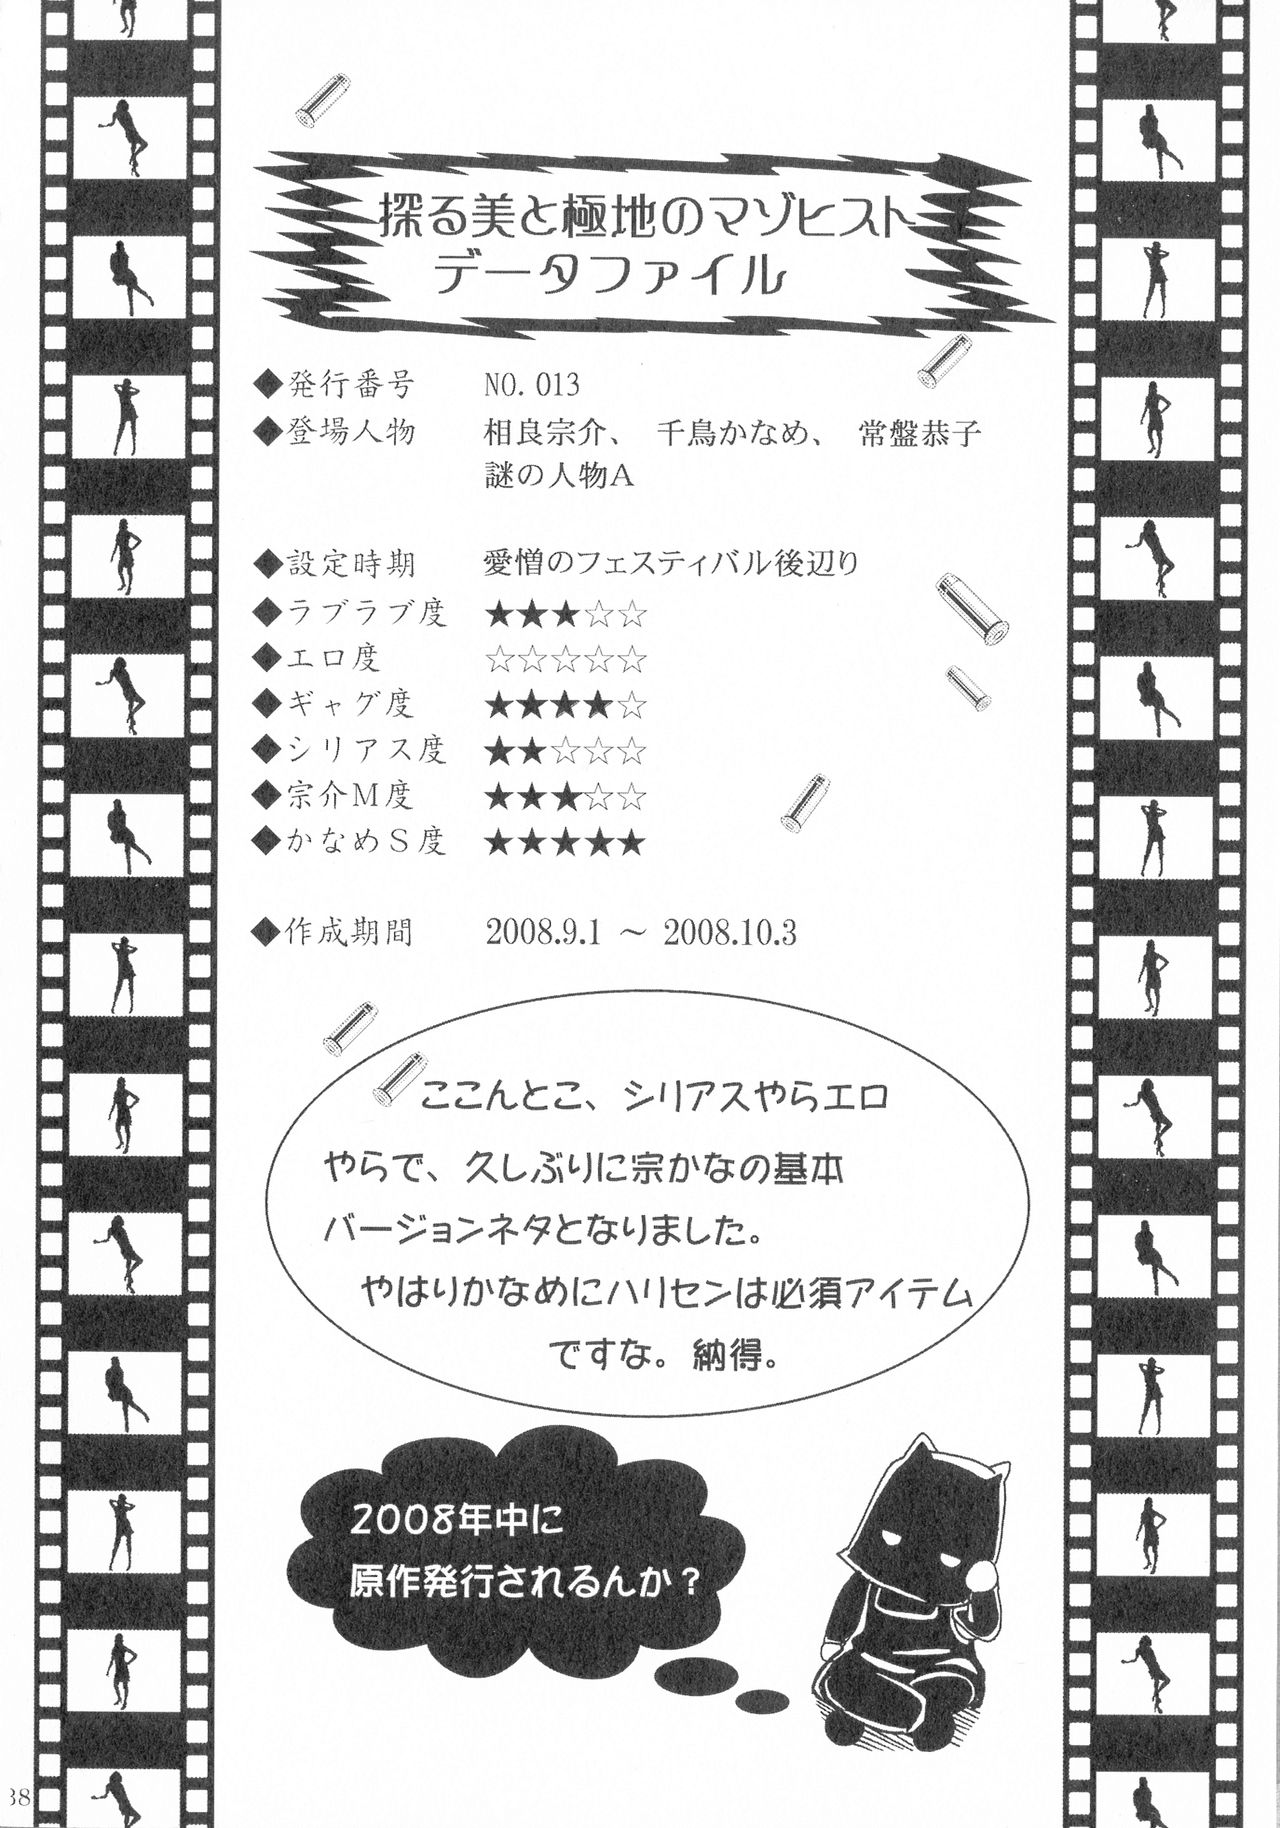 探る美と極地のマゾヒスト
データファイル
◆発行番号 NO. 013
◆登場人物 相良宗介、 千鳥かなめ、 常盤恭子
謎の人物A
◆設定時期 愛憎のフェスティバル後辺り
◆ラブラブ度 ★★★☆☆
◆エロ度 ☆☆☆☆☆
◆ギャグ度 ★★★★☆
◆シリアス度 ★★☆☆☆
◆宗介M度 ★★★☆☆
◆かなめS度 ★★★★★
◆作成期間 2008.9.1 ～ 2008.10.3
ここんとこ、シリアスやらエロ
やらで、久しぶりに宗かなの基本
バージョンネタとなりました。
やはりかなめにハリセンは必須アイテム
ですな。納得。
2008年中に
原作発行されるんか？
38